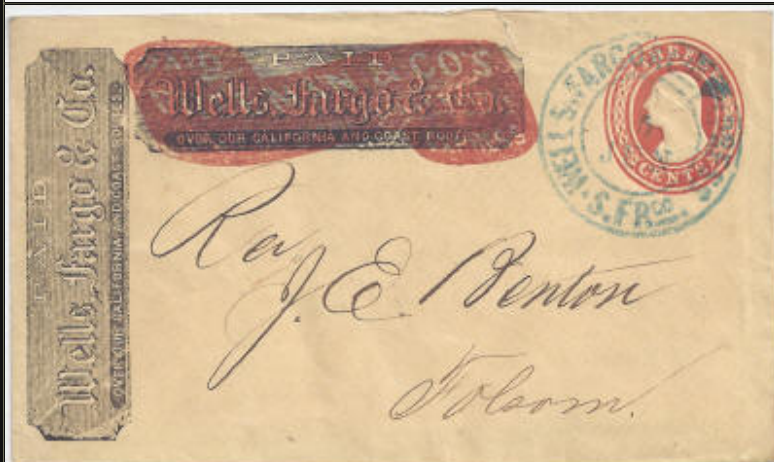 PAID
Wells, Fargo & Co.
OVER OUR CALIFORNIA AND COAST ROUTES
PAID
Wells, Fargo & Co.
OVER OUR CALIFORNIA AND COAST ROUTES
WELLS, FARGO
S. FRCO.
THREE
CENTS
Rev
J. E. Benton
Folsom.